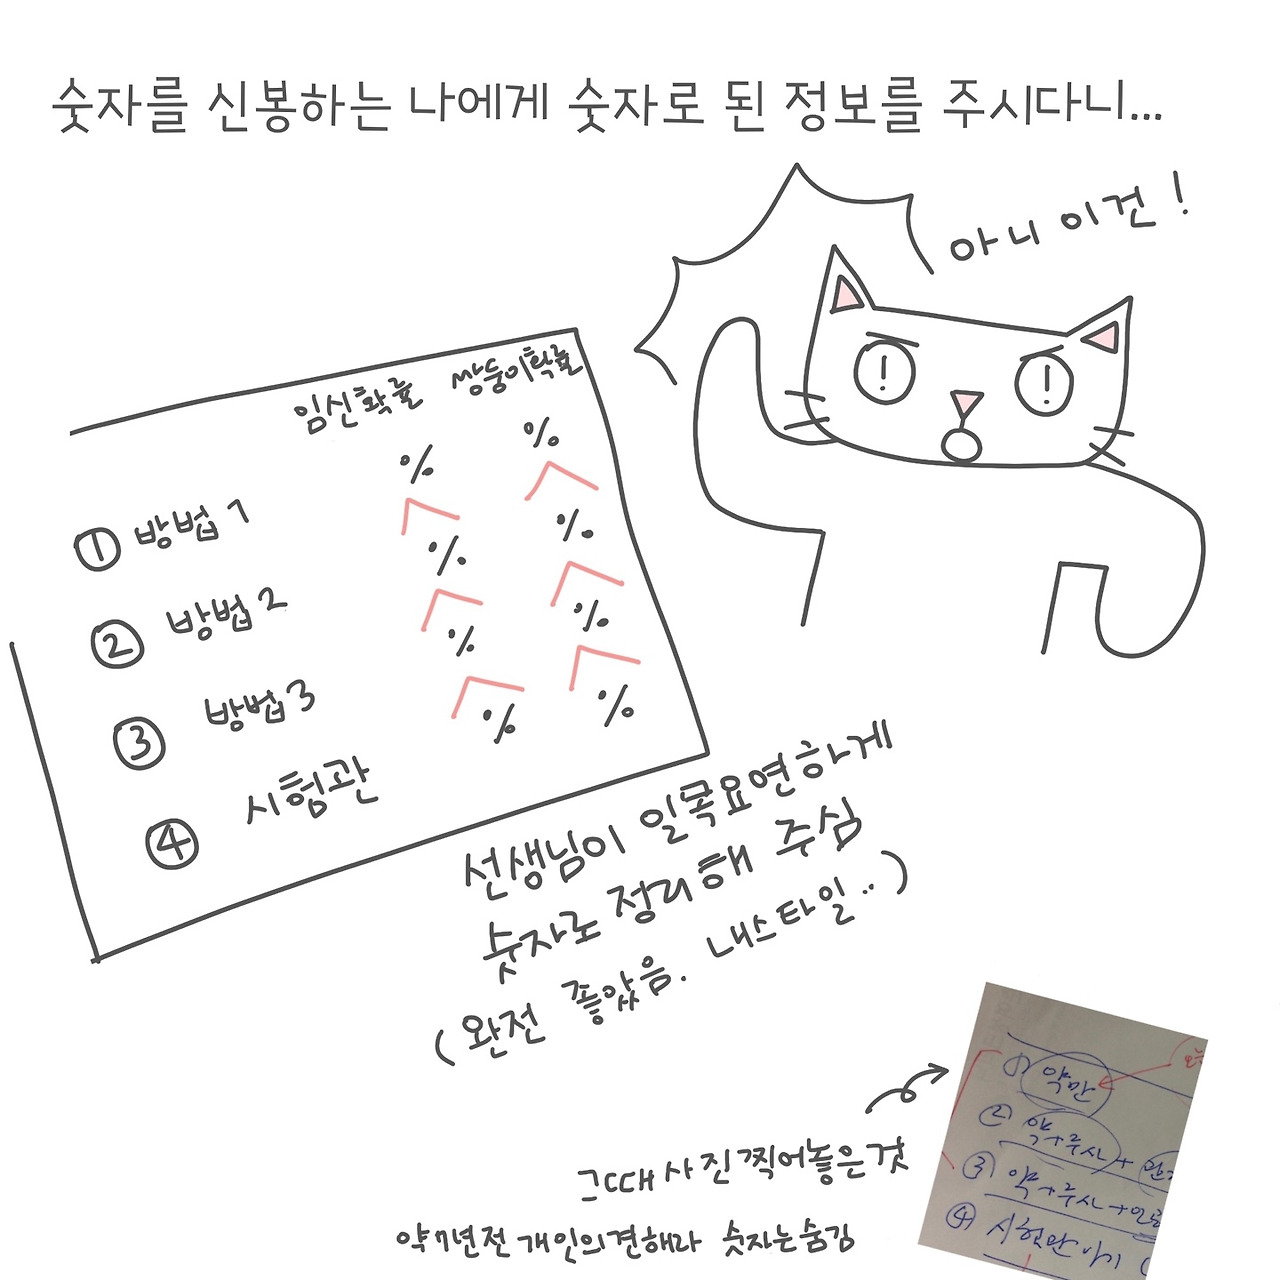 숫자를 신봉하는 나에게 숫자로 된 정보를 주시다니...
아니 이건!
임신확률 쌍둥이확률
% %
① 방법1 % %
② 방법2 % %
③ 방법3 % %
④ 시험관
선생님이 일목요연하게
숫자로 정리해 주심
(완전 좋았음. 내스타일..)
그때 사진찍어놓은것
약7년전 개인의견해라 숫자는숨김
① 약만
② 약+주사+
③ 약+주사+인공
④ 시험관 아기